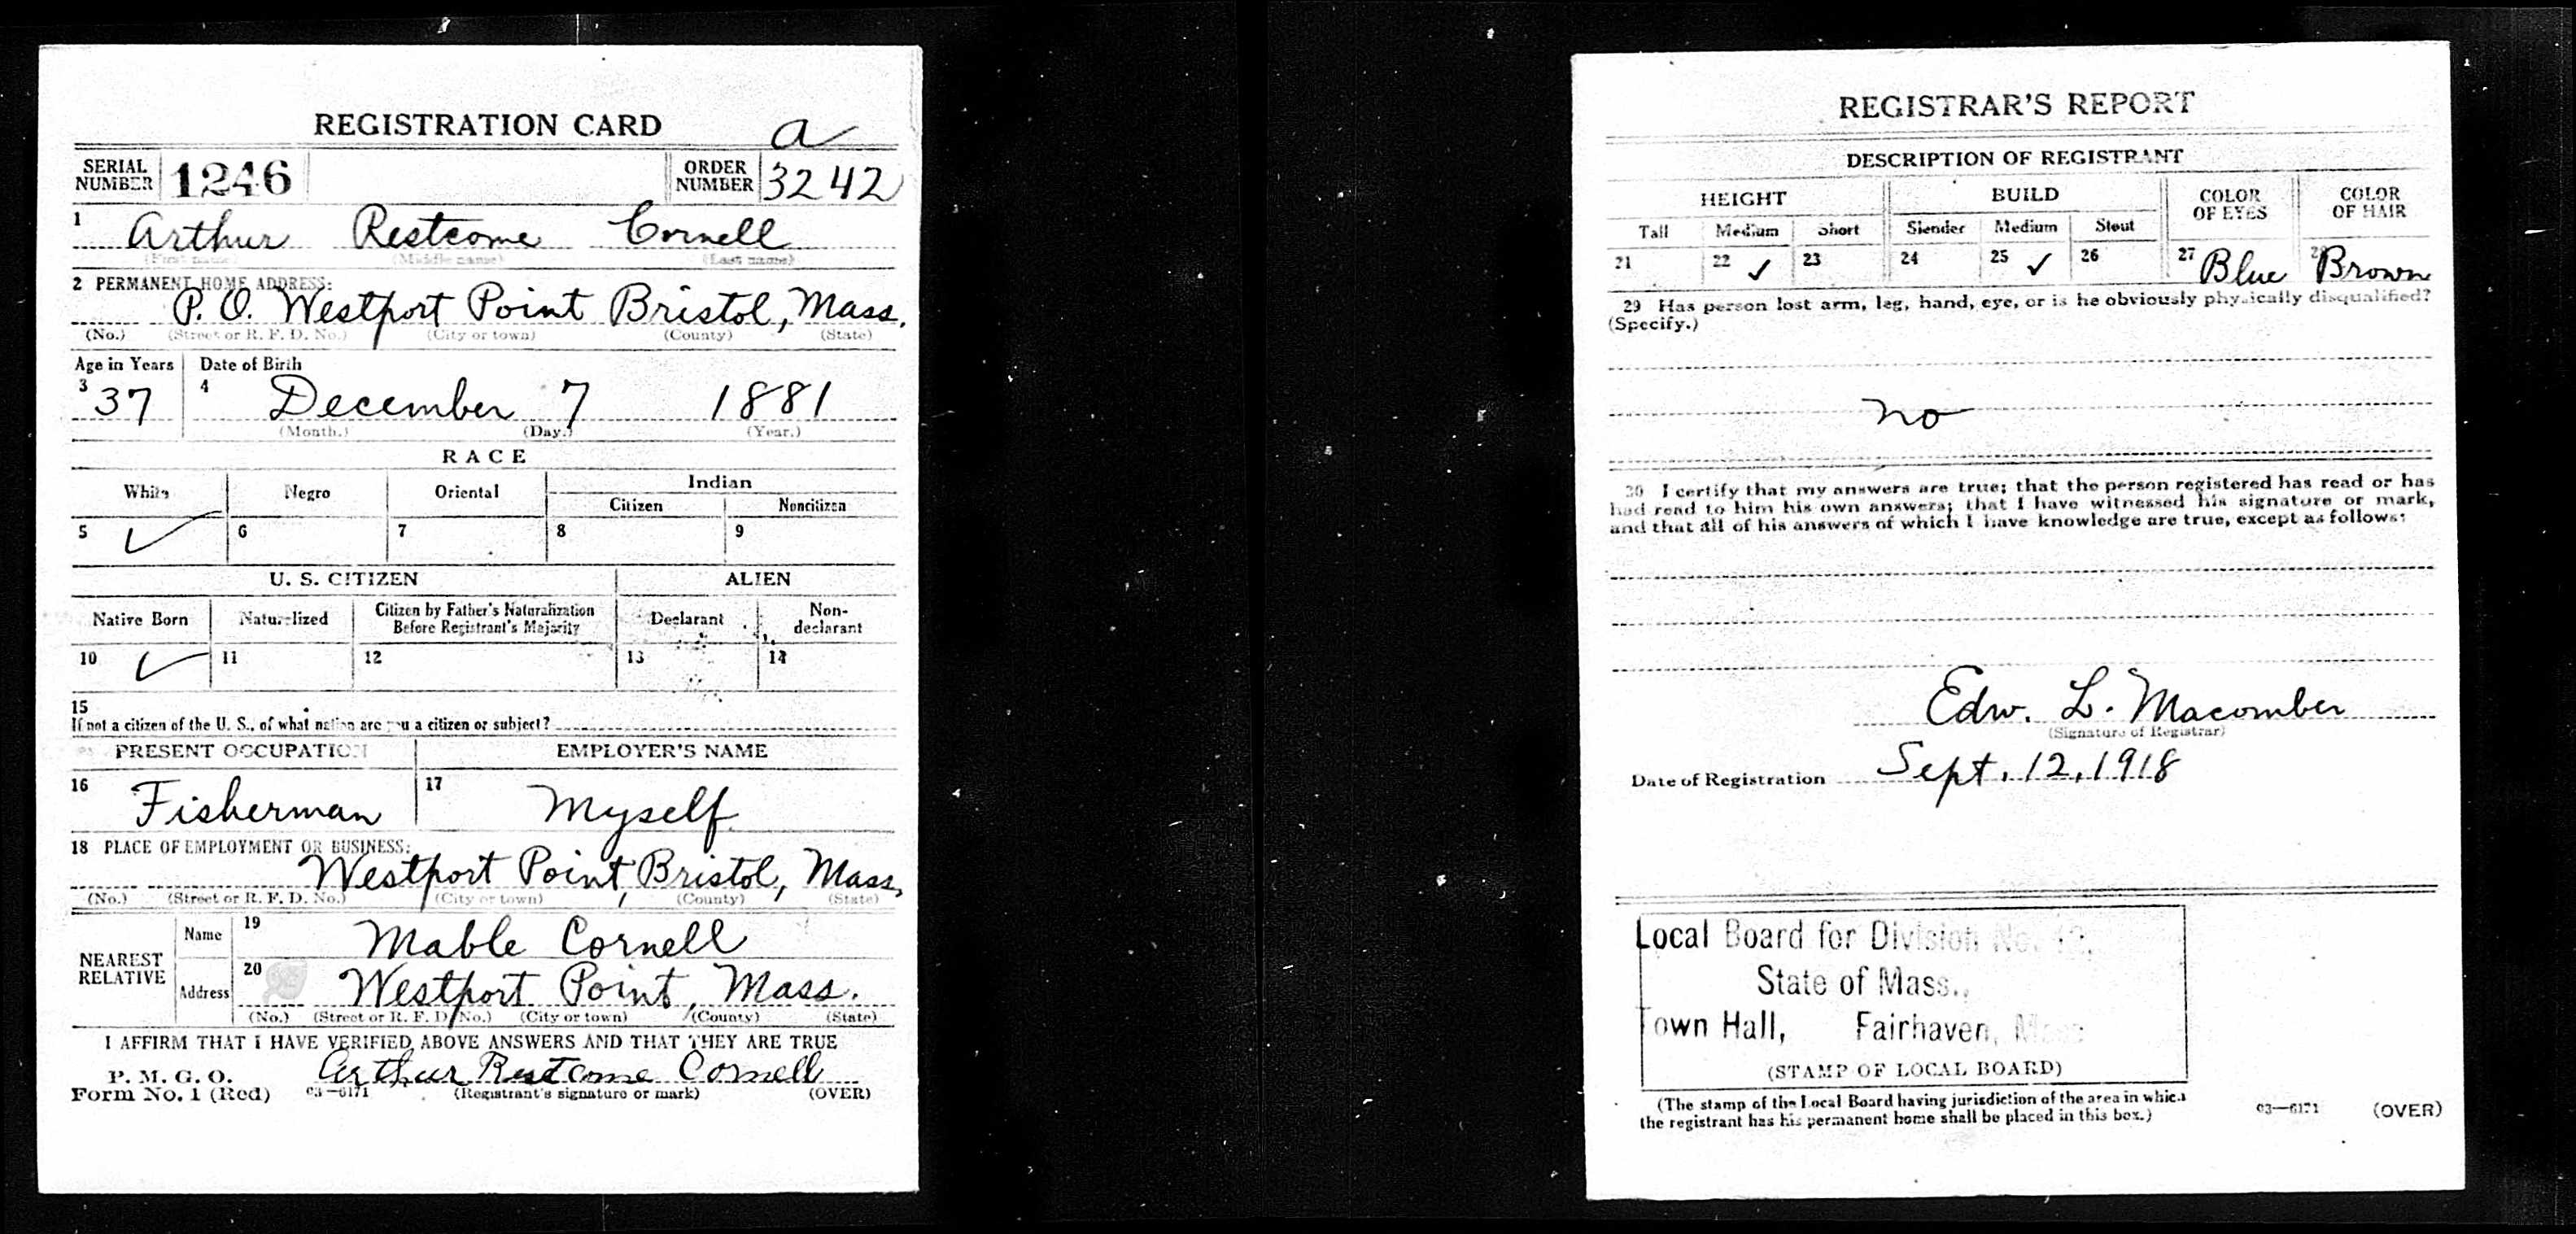 REGISTRATION CARD a
SERIAL NUMBER 1246 ORDER NUMBER 3242
1 Arthur Restcome Cornell
(First name) (Middle name) (Last name)
2 PERMANENT HOME ADDRESS:
P. O. Westport Point Bristol, Mass.
(No.) (Street or R. F. D. No.) (City or town) (County) (State)
Age in Years Date of Birth
3 37 4 December 7 1881
(Month.) (Day.) (Year.)
RACE
White Negro Oriental Indian
Citizen Noncitizen
5 ✓ 6 7 8 9
U. S. CITIZEN ALIEN
Native Born Naturalized Citizen by Father's Naturalization Before Registrant's Majority Declarant Non-declarant
10 ✓ 11 12 13 14
15
If not a citizen of the U. S., of what nation are you a citizen or subject?
PRESENT OCCUPATION EMPLOYER'S NAME
16 Fisherman 17 Myself
18 PLACE OF EMPLOYMENT OR BUSINESS:
Westport Point, Bristol, Mass,
(No.) (Street or R. F. D. No.) (City or town) (County) (State)
NEAREST RELATIVE Name 19 Mable Cornell
Address 20 Westport Point, Mass.
(No.) (Street or R. F. D. No.) (City or town) (County) (State)
I AFFIRM THAT I HAVE VERIFIED ABOVE ANSWERS AND THAT THEY ARE TRUE
P. M. G. O. Arthur Restcome Cornell
Form No. 1 (Red) 03—6171 (Registrant's signature or mark) (OVER)
REGISTRAR'S REPORT
DESCRIPTION OF REGISTRANT
HEIGHT BUILD COLOR OF EYES COLOR OF HAIR
Tall Medium Short Slender Medium Stout
21 22 ✓ 23 24 25 ✓ 26 27 Blue 28 Brown
29 Has person lost arm, leg, hand, eye, or is he obviously physically disqualified?
(Specify.)
no
30 I certify that my answers are true; that the person registered has read or has
had read to him his own answers; that I have witnessed his signature or mark,
and that all of his answers of which I have knowledge are true, except as follows:
Edw. L. Macomber
(Signature of Registrar)
Date of Registration Sept. 12, 1918
Local Board for Division No.
State of Mass.,
Town Hall, Fairhaven, Mass
(STAMP OF LOCAL BOARD)
(The stamp of the Local Board having jurisdiction of the area in which
the registrant has his permanent home shall be placed in this box.)
03—6171 (OVER)